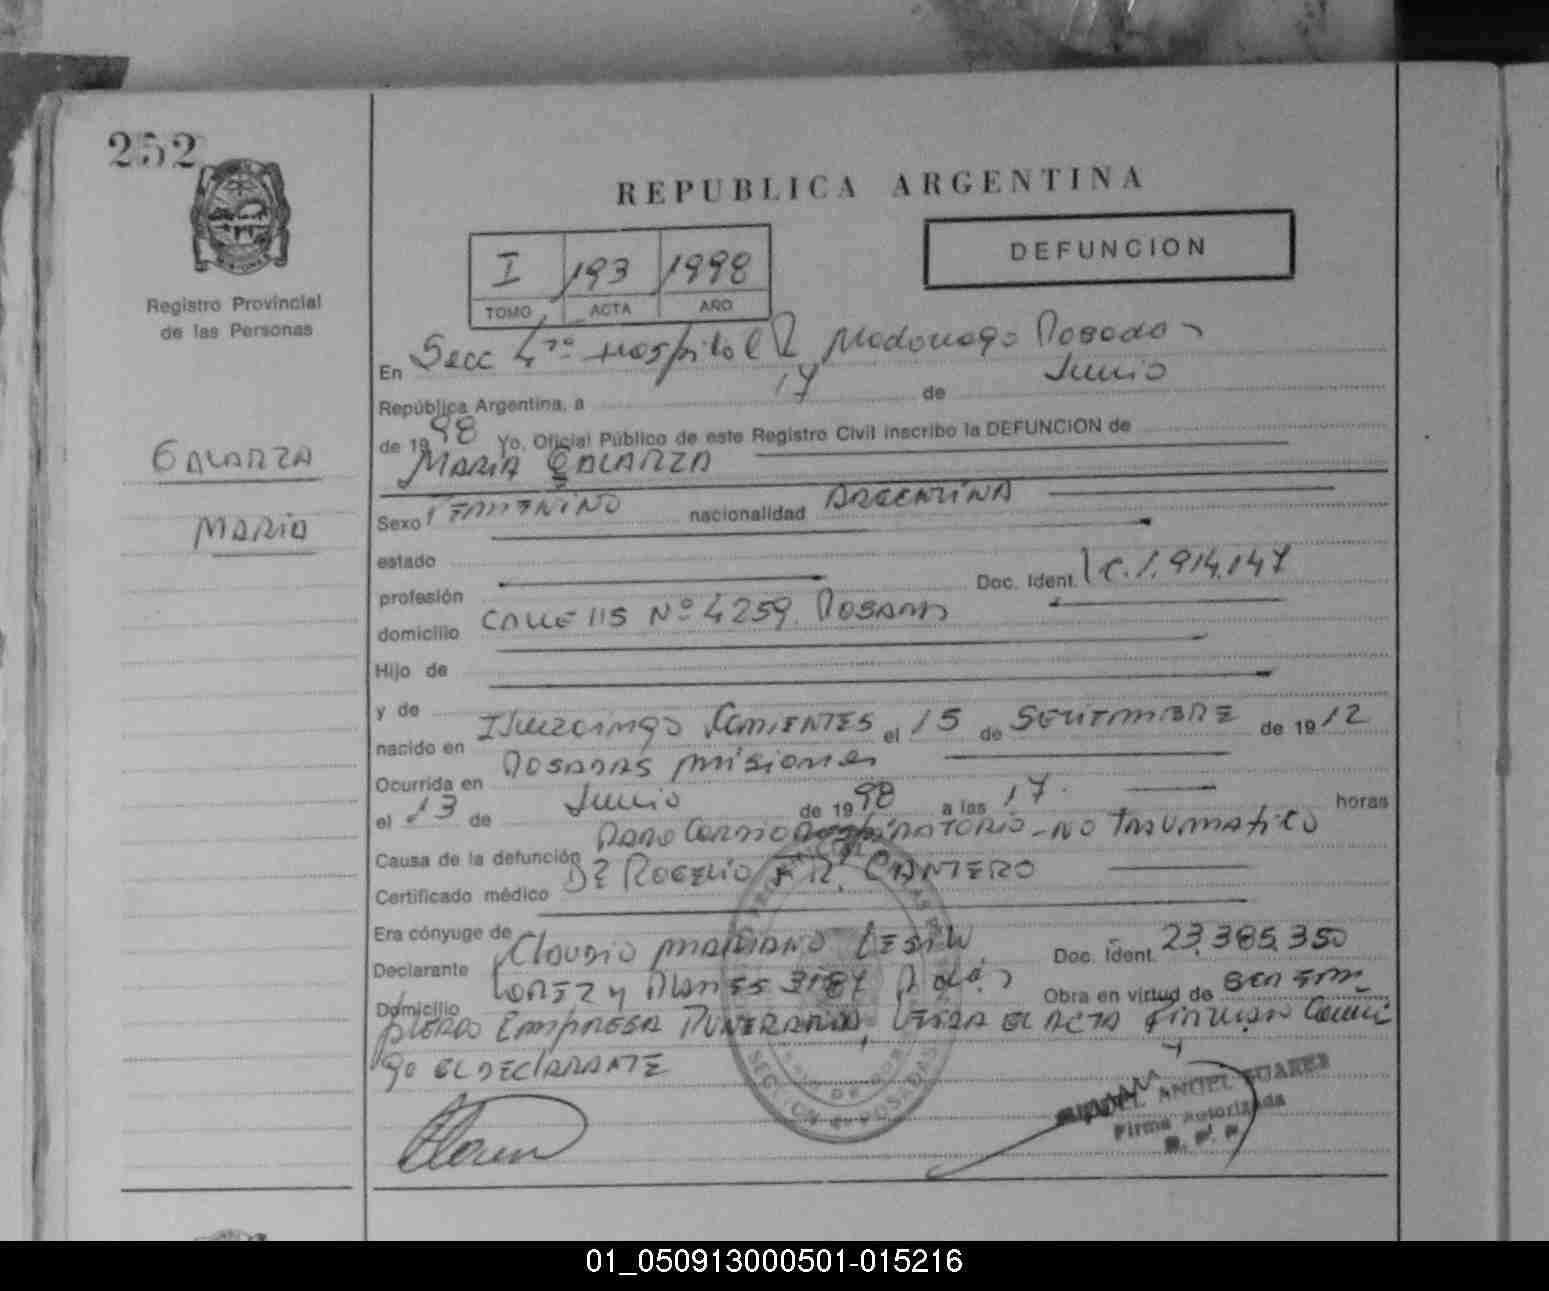 252
REPUBLICA ARGENTINA
DEFUNCION
I 193 1998
TOMO ACTA AÑO
Registro Provincial
de las Personas
En Secc 4ta Hospital R Madariaga Posadas
República Argentina, a 17 de Junio
de 1998 Yo, Oficial Público de este Registro Civil inscribo la DEFUNCION de
MARIA GALARZA
GALARZA
MARIA
Sexo FEMENINO nacionalidad ARGENTINA
estado
profesión Doc. Ident. LC. 1.914.147
domicilio CALLE 115 Nº 4259 POSADAS
Hijo de
y de
nacido en Ituzaingo CORRIENTES el 15 de SEPTIEMBRE de 1912
Ocurrida en POSADAS MISIONES
el 13 de Junio de 1998 a las 17. horas
Causa de la defunción PARO CARDIO RESPIRATORIO - NO TRAUMATICO
Certificado médico Dr ROGELIO FR. CANTERO
Era cónyuge de
Declarante CLAUDIO MARIANO Doc. Ident. 23.385.350
Domicilio LOPEZ Y PLANES Obra en virtud de SER EM
PLEADO EMPRESA FUNERARIA. LEIDA EL ACTA FIRMAN CONMI
GO EL DECLARANTE
SECCION POSADAS
MIGUEL ANGEL SUAREZ
Firma Autorizada
R. P. P.
01_050913000501-015216